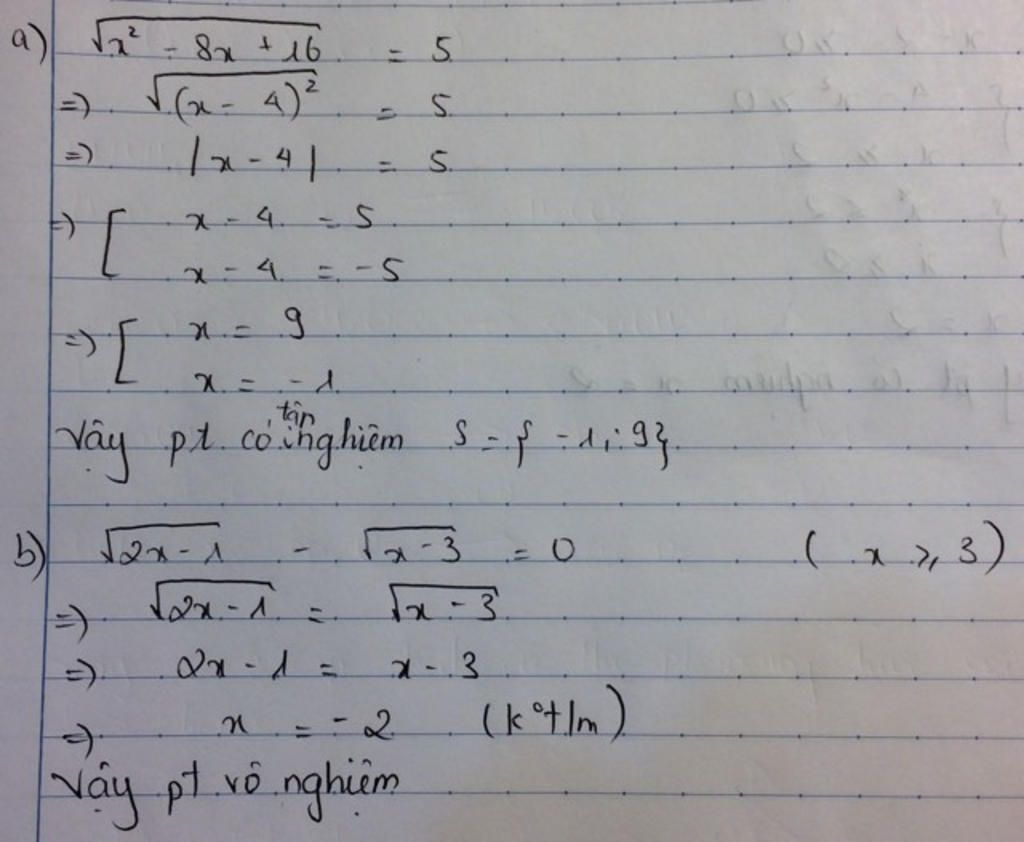 a) √(x² - 8x + 16) = 5
=) √((x - 4)²) = 5
=) |x - 4| = 5
=) [ x - 4 = 5
x - 4 = -5
=) [ x = 9
x = -1
Vậy pt có tập nghiệm S = { -1; 9}
b) √(2x - 1) - √(x - 3) = 0 (x ≥ 3)
=) √(2x - 1) = √(x - 3)
=) 2x - 1 = x - 3
=) x = -2 (k°t/m)
Vậy pt vô nghiệm